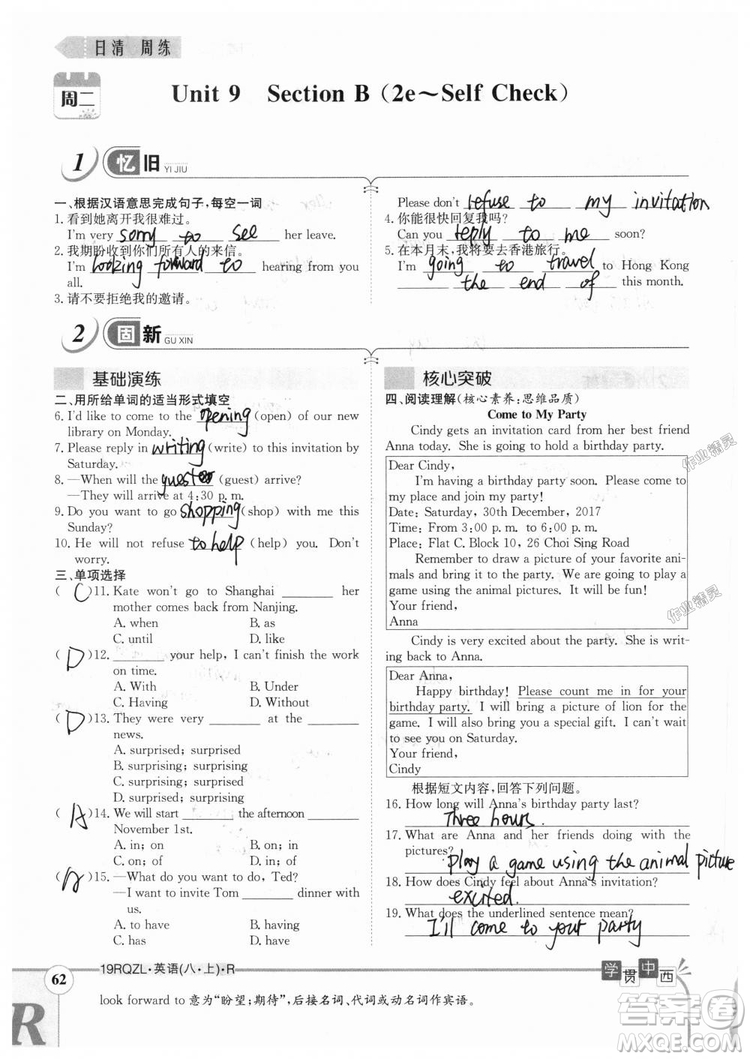 日清 周练
周二
Unit 9 Section B (2e～Self Check)
1 忆 旧 YI JIU
一、根据汉语意思完成句子,每空一词
1. 看到她离开我很难过。
I'm very sorry to see her leave.
2. 我期盼收到你们所有人的来信。
I'm looking forward to hearing from you
all.
3. 请不要拒绝我的邀请。
Please don't refuse to my invitation
4. 你能很快回复我吗?
Can you reply to me soon?
5. 在本月末,我将要去香港旅行。
I'm going to travel to Hong Kong
the end of this month.
2 固 新 GU XIN
基础演练
二、用所给单词的适当形式填空
6. I'd like to come to the opening (open) of our new
library on Monday.
7. Please reply in writing (write) to this invitation by
Saturday.
8. —When will the guests (guest) arrive?
—They will arrive at 4:30 p. m.
9. Do you want to go shopping (shop) with me this
Sunday?
10. He will not refuse to help (help) you. Don't
worry.
三、单项选择
( C )11. Kate won't go to Shanghai ______ her
mother comes back from Nanjing.
A. when B. as
C. until D. like
( D )12. ______ your help, I can't finish the work
on time.
A. With B. Under
C. Having D. Without
( D )13. They were very ______ at the ______
news.
A. surprised; surprised
B. surprising; surprised
C. surprising; surprising
D. surprised; surprising
( A )14. We will start ______ the afternoon ______
November 1st.
A. in; on B. on; on
C. on; of D. in; of
( A )15. —What do you want to do, Ted?
—I want to invite Tom ______ dinner with
us.
A. to have B. having
C. has D. have
核心突破
四、阅读理解(核心素养:思维品质)
Come to My Party
Cindy gets an invitation card from her best friend
Anna today. She is going to hold a birthday party.
Dear Cindy,
I'm having a birthday party soon. Please come
and join my party!
Date: Saturday, 30th December, 2017
Time: From 3:00 p. m. to 6:00 p. m.
Place: Flat C. Block 10, 26 Choi Sing Road
Remember to draw a picture of your favorite ani-
mals and bring to the party. We are going to play a
game using the animal pictures.
Your friend,
Anna
Cindy is very excited about the party. She is writ-
ing back to Anna.
Dear Anna,
Happy birthday! Please count me in for your
birthday party. I will draw a picture of lion for the
game. I will also bring you a special gift. I can't wait
to see you on Saturday.
Your friend,
Cindy
根据短文内容,回答下列问题。
16. How long will Anna's birthday party last?
Three hours.
17. What are Anna and her friends doing with the
pictures? Play a game using the animal picture
18. How does Cindy feel about Anna's invitation?
excited.
19. What does the underlined sentence mean?
I'll come to your party
62
19RQZL·英语(八·上)·R
学 贯 中 西
look forward to 意为“盼望;期待”,后接名词、代词或动名词作宾语。
R
作业精灵
作业精灵
答案圈
MXQE.COM